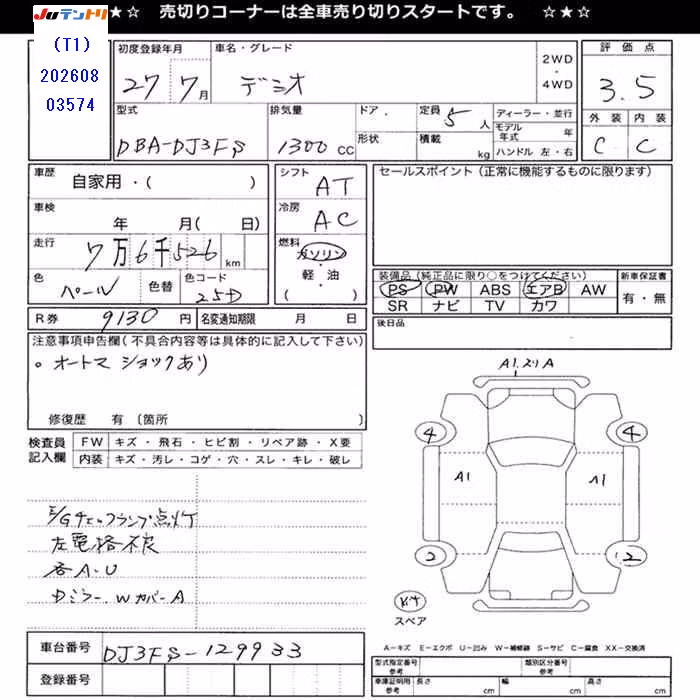 ☆★☆ 売切りコーナーは全車売り切りスタートです。 ☆★☆
JUテントリ
(T1)
202608
03574
初度登録年月
27 7月
車名・グレード
デミオ
2WD
・
4WD
評価点
3.5
外装 内装
C C
型式
DBA-DJ3FS
排気量
1300 CC
ドア
形状
定員 5 人
積載 kg
ディーラー・並行
モデル年式 年
ハンドル 左・右
車歴 自家用・( )
シフト AT
車検 年 月( 日)
冷房 AC
走行 7万6千526 km
燃料
ガソリン
・
軽・油
( )
色 パール 色替 色コード 25D
R券 9130 円 名変通知期限 月 日
セールスポイント(正常に機能するものに限ります)
装備品(純正品に限り○をつけてください)
PS PW ABS エアB AW
SR ナビ TV カワ
新車保証書
有・無
後日品
注意事項申告欄(不具合内容等は具体的に記入して下さい)
。オートマ ショックあり
修復歴 有〔箇所
検査員記入欄
FW キズ・飛石・ヒビ割・リペア跡・X要
内装 キズ・汚レ・コゲ・穴・スレ・キレ・破レ
E/Gチェックランプ点灯
左電格不良
各A・U
ドミラー、WカバーA
A1.スリA
4 4
A1 A1
2 2
スペア
A−キズ E−エクボ U−凹み W−補修跡 S−サビ C−腐食 XX−交換済
車台番号 DJ3FS-129933
登録番号
型式指定番号 参考
類別区分番号 参考
車庫証明用 参考 長さ cm 幅 cm 高さ cm